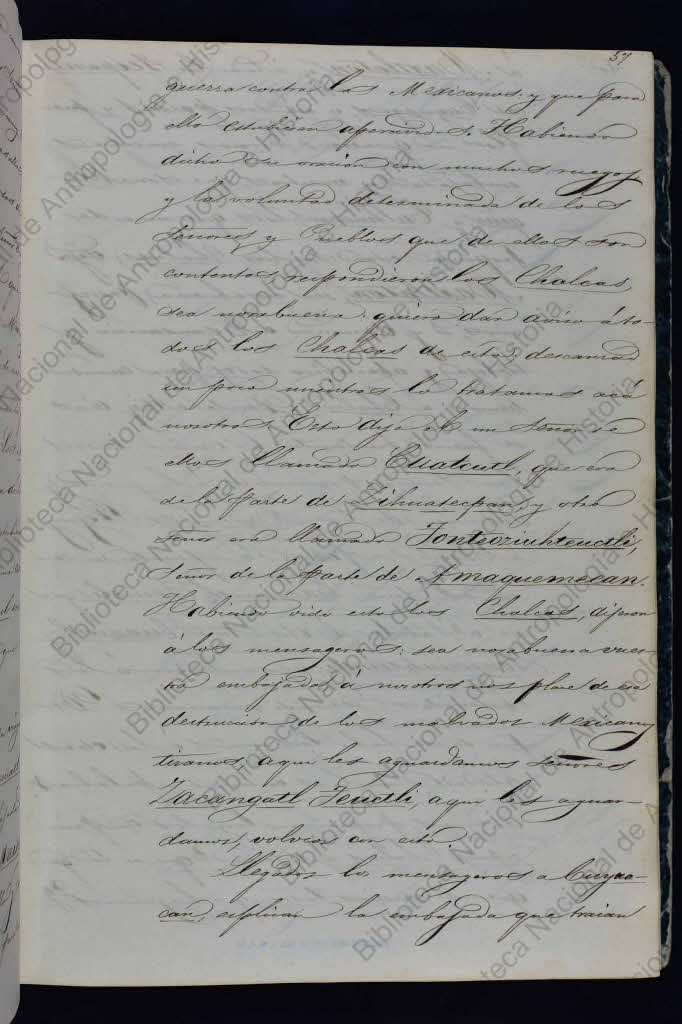 57
guerra contra los Mexicanos: y que para
ello estubiesen apercividos. Habiendo
dicho su oración con muchos ruegos
y la voluntad determinada de los
Señores, y Pueblos que de ellos son
contentos respondieron los Chalcas,
sea norabuena quiero dar aviso á to-
dos los Chalcas de esto, descansad
un poco mientras lo tratamos acá
nosotros. Esto dijo el un Señor de
ellos llamado Cuateutl, que era
de la parte de Zihuatecpan, y otro
señor era llamado Tonteoziuhteuctli,
Señor de la parte de Amaquemecan.
Habiendo oido esto los Chalcas, dijeron
á los mensageros: sea norabuena vues-
tra embajada á nosotros nos place de esa
destruicion de los malvados Mexicanos
tiranos, aqui les aguardamos señores
Zacangatl Teuctli, aqui les aguar-
damos, volveos con esto.
Llegados los mensageros a Cuyoa-
can, esplican la embajada que traian
Biblioteca Nacional de Antropología e Historia